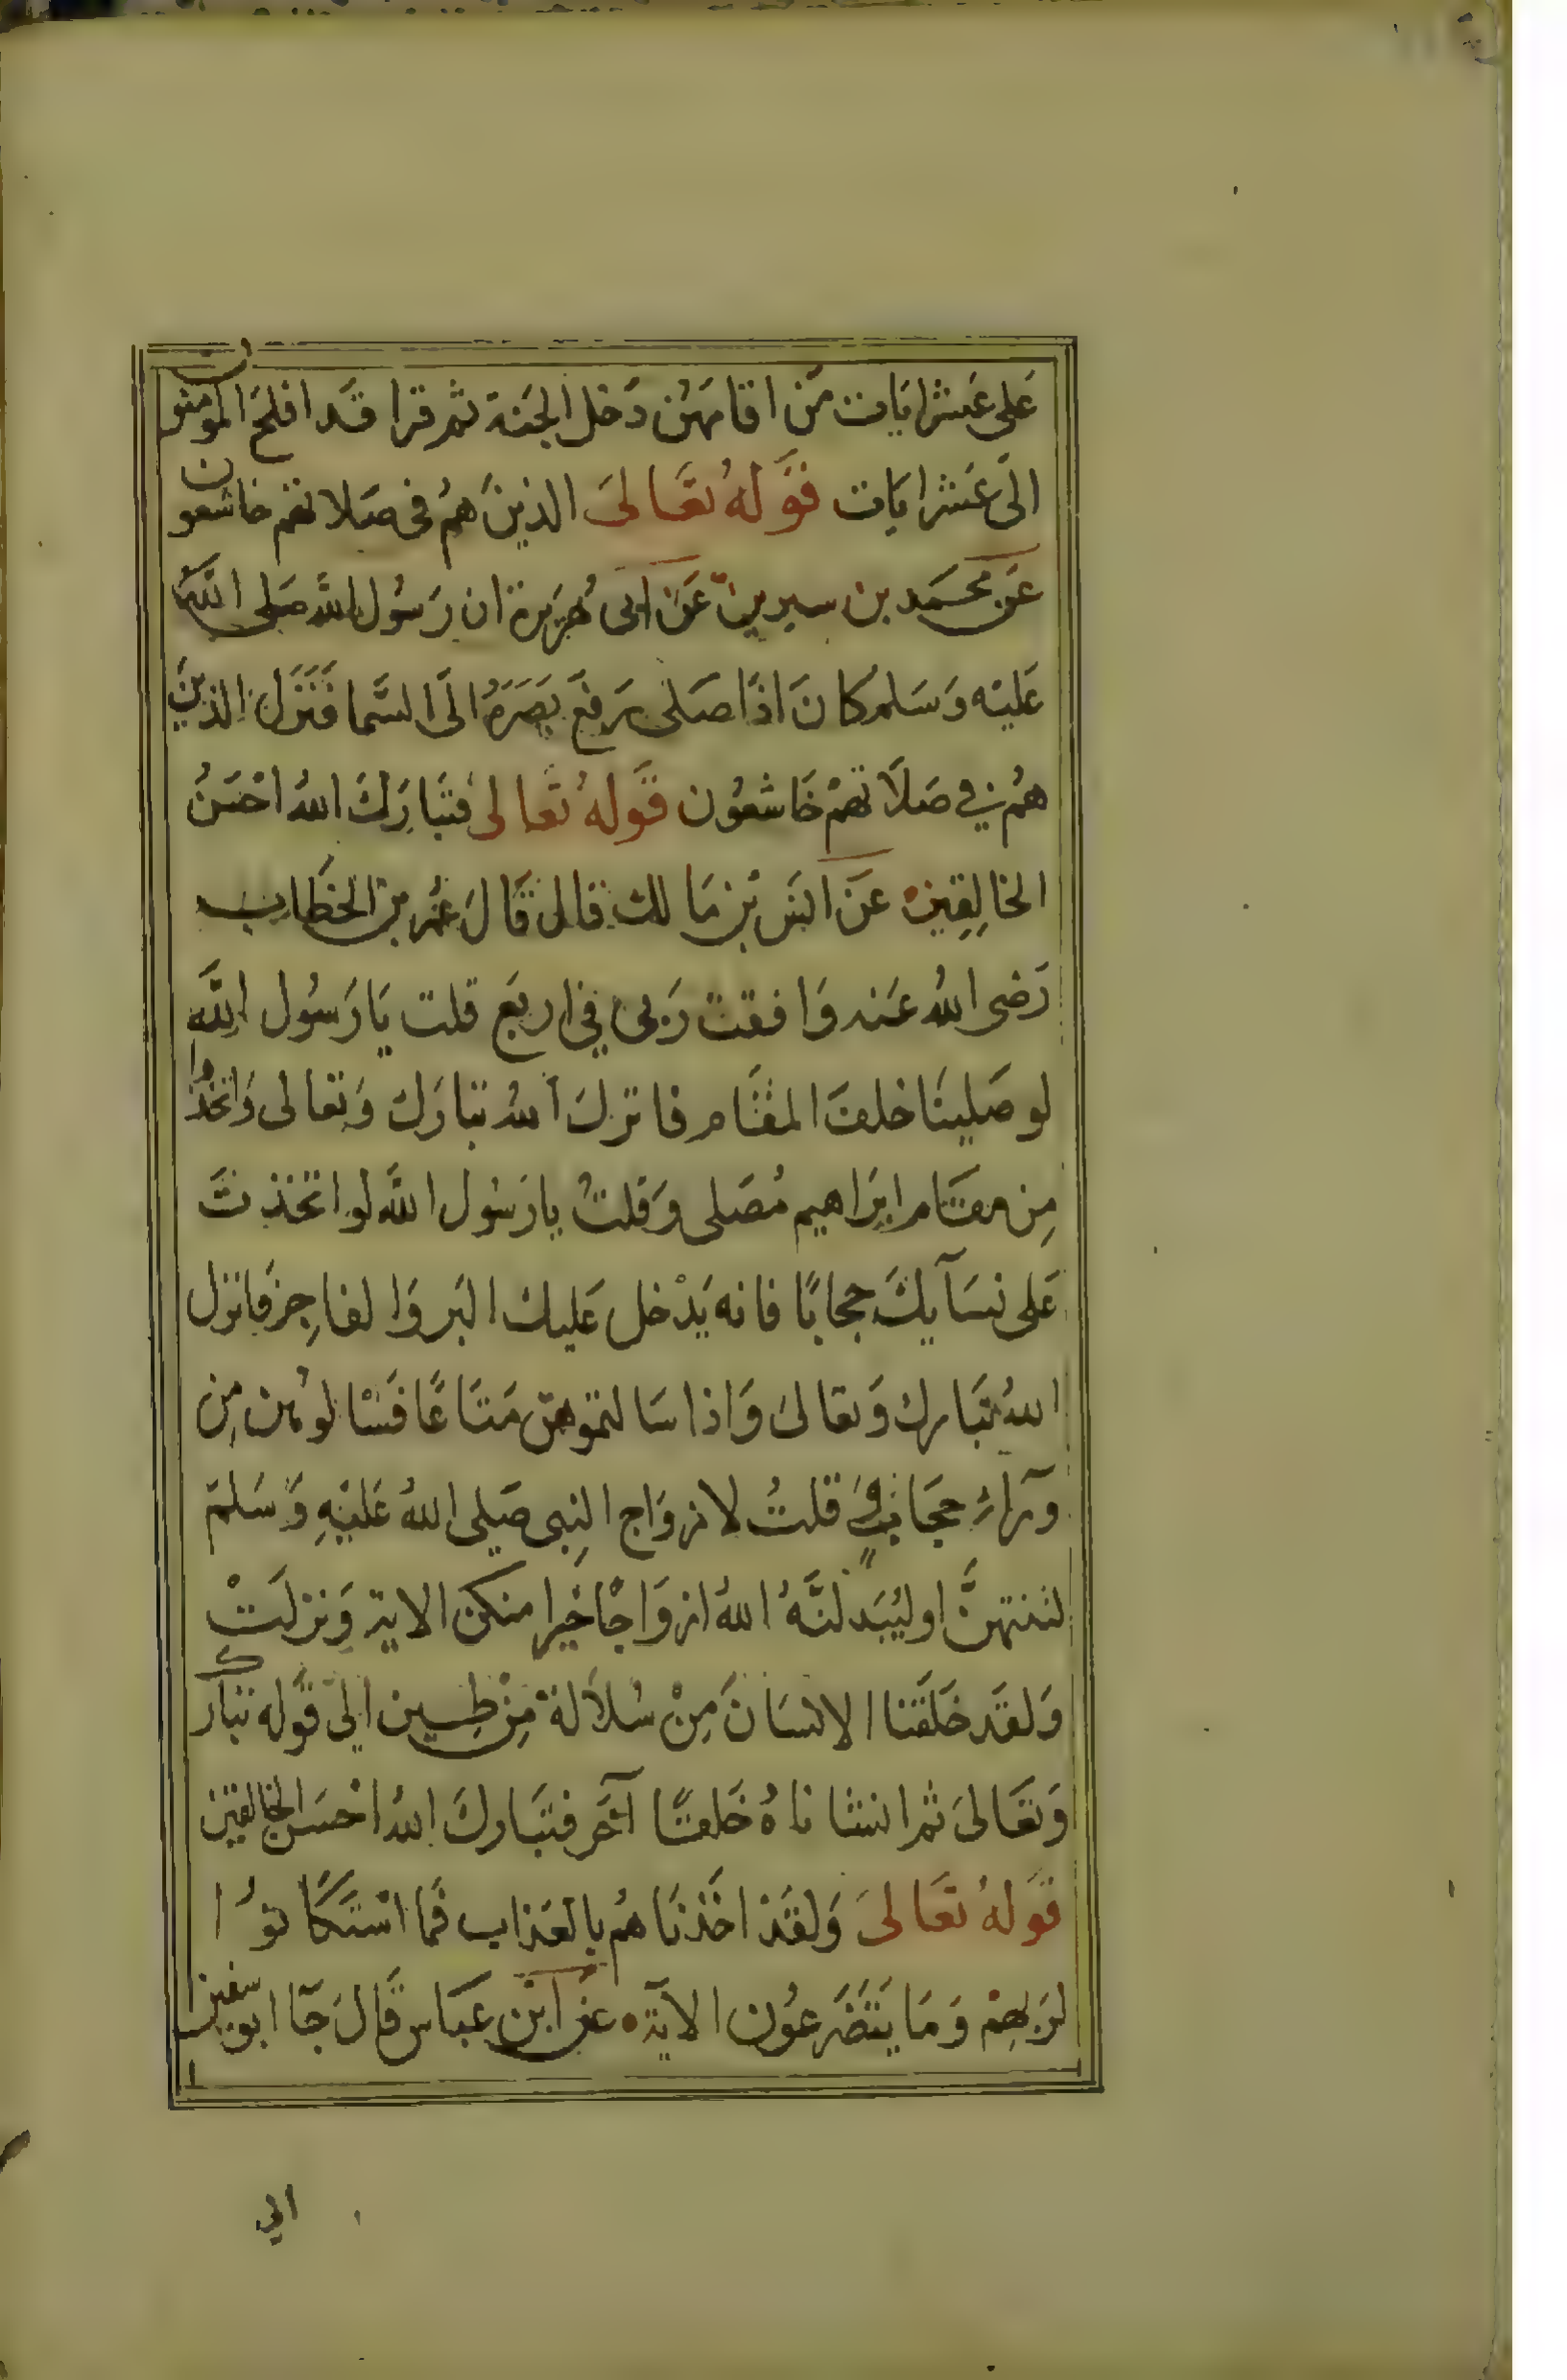 عَلى عَشر ايَات مَن اقامَهُن دَخل الجَنة ثم قرا قَد افلَح المومنون
الَى عَشر ايَات قَولهُ تعَالىَ الذينَ همُ فى صَلاتهم خاشعون
عَن محَمَد بن سيرين عَن ابى هُرَيرة ان رَسُول الله صَلى الله
عَليْه وَسَلم كانَ اذَا صَلى يَرفعَ بَصَرَهُ الَى السَّما فَنَزَل الذينَ
هُم في صَلَاتهمْ خَاشعُون قَولهُ تعَالى فتَبَارَكَ اللهُ احْسَنُ
الخالِقِين عَن انَس بْن مَالك قال قَالَ عُمر بن الخطاب
رَضى اللهُ عَنه وَافقت رَبى في اربَع قلت يَا رَسُول اللَّه
لو صَلينَا خلف المقَام فانزلَ اللهُ تبارَكَ وَتعالى وَاتخذُوا
مِن مقَام ابرَاهيم مُصَلى وَقلتُ يا رَسُول اللَّه لو اتخذتَ
عَلى نسَآيكَ حجابًا فانه يَدْخل عَليك البَر وَالفاجِر فانزل
اللهُ تبَارك وَتعالىَ وَاذا سَالتموهنّ مَتَاعًا فَسْالوهُن مِن
وَرآءِ حجَاب وَ قلتُ لازوَاج النبِى صَلى اللهُ عَليْهِ وَسَلم
لتنتهنَّ او ليُبَدلنَّهُ اللهُ ازوَاجًا خَيرا منكن الاية وَنزلَتْ
وَلقَد خَلَقنا الانسَانَ مِنْ سُلاَلة مِنْ طِين الىَ قَوله تبارك
وَتعَالىَ ثم انشاناهُ خَلقًا آخَر فتبَاركَ اللهُ احْسَن الخالقين
قَولهُ تعَالىَ وَلقَد اخَذنَاهُم بالعَذاب فَما اسْتَكَانوُا
لرَبهِمْ وَمَا يَتَضَرعُون الآية عَن ابْن عَباس قَالَ جَآ ابو سفين
الى